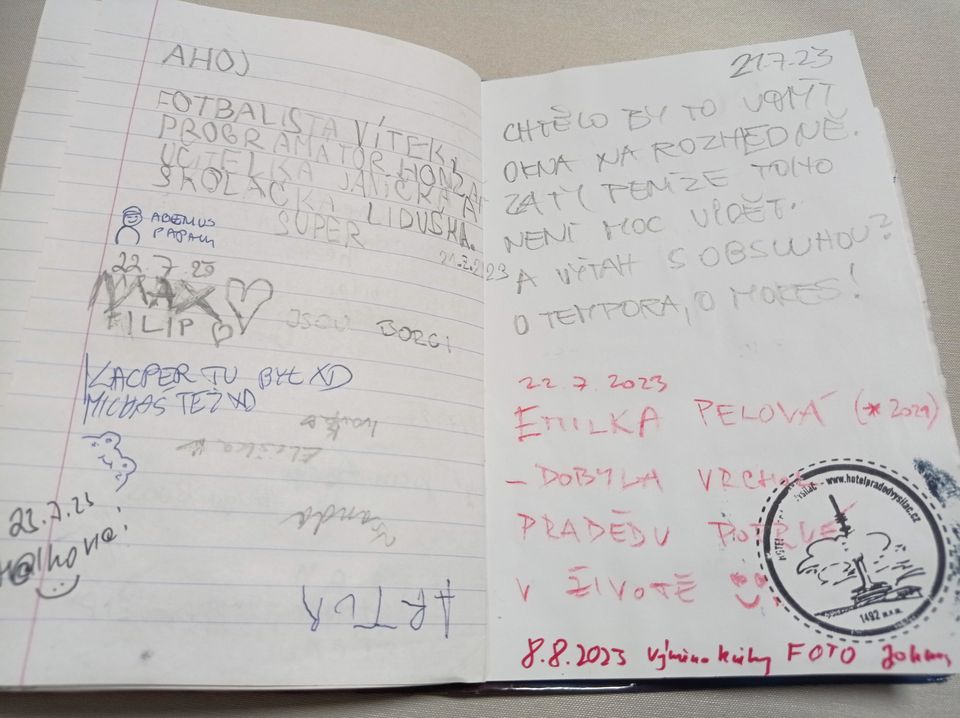 AHOJ
FOTBALISTA VÍTEK,
PROGRAMÁTOR HONZA,
UČITELKA JANIČKA A
ŠKOLAČKA LIDUŠKA.
SUPER
21.7.2023
ADEMUS
PAPAM
22.7.23
MAX
FILIP
JSOU BORCI
KACPER TU BYŁ XD
MICHAŚ TEŻ XD
Eliška
23.7.23
ARTUR
21.7.23
CHTĚLO BY TO UMÝT
OKNA NA ROZHEDNĚ.
ZA TY PENÍZE TOHO
NENÍ MOC VIDĚT.
A VÝTAH S OBSLUHOU?
O TEMPORA, O MORES!
22.7.2023
EMILKA PELOVÁ (*2021)
- DOBYLA VRCHOL
PRADĚDU POPRVÉ
V ŽIVOTĚ
www.hotelpradedvysilac.cz
1492 m.n.m.
8.8.2023 výměna knihy FOTO